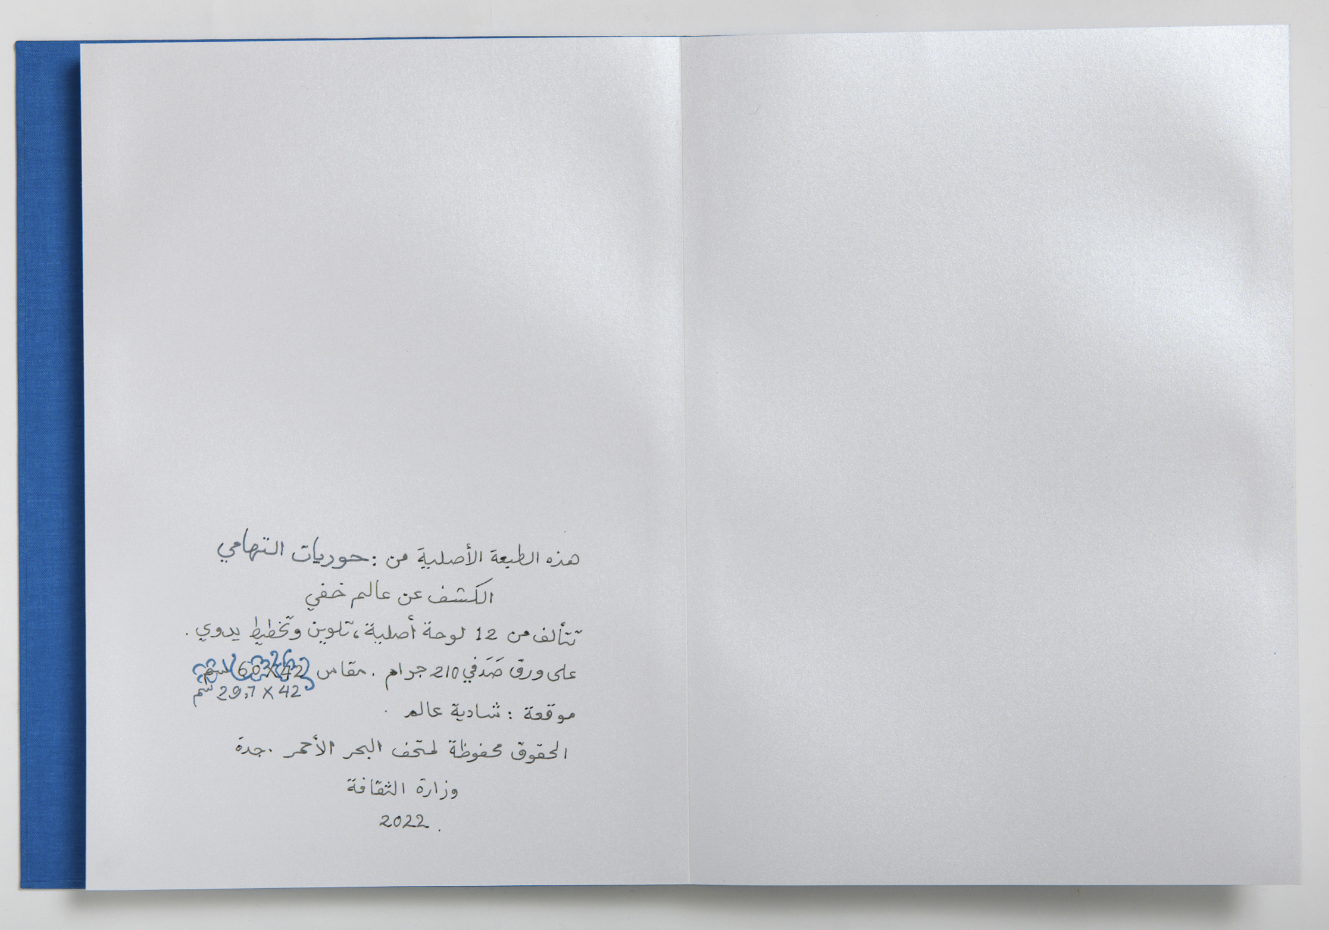 هذه الطبعة الأصلية من : حوريات التهامي
الكشف عن عالم خفي
تتألف من 12 لوحة أصلية ، تلوين وتخطيط يدوي .
على ورق صَدَفي 210 جرام . مقاس 42 X 60 سم
42 X 29,7 سم
موقعة : شادية عالم .
الحقوق محفوظة لمتحف البحر الأحمر . جدة
وزارة الثقافة
2022 .